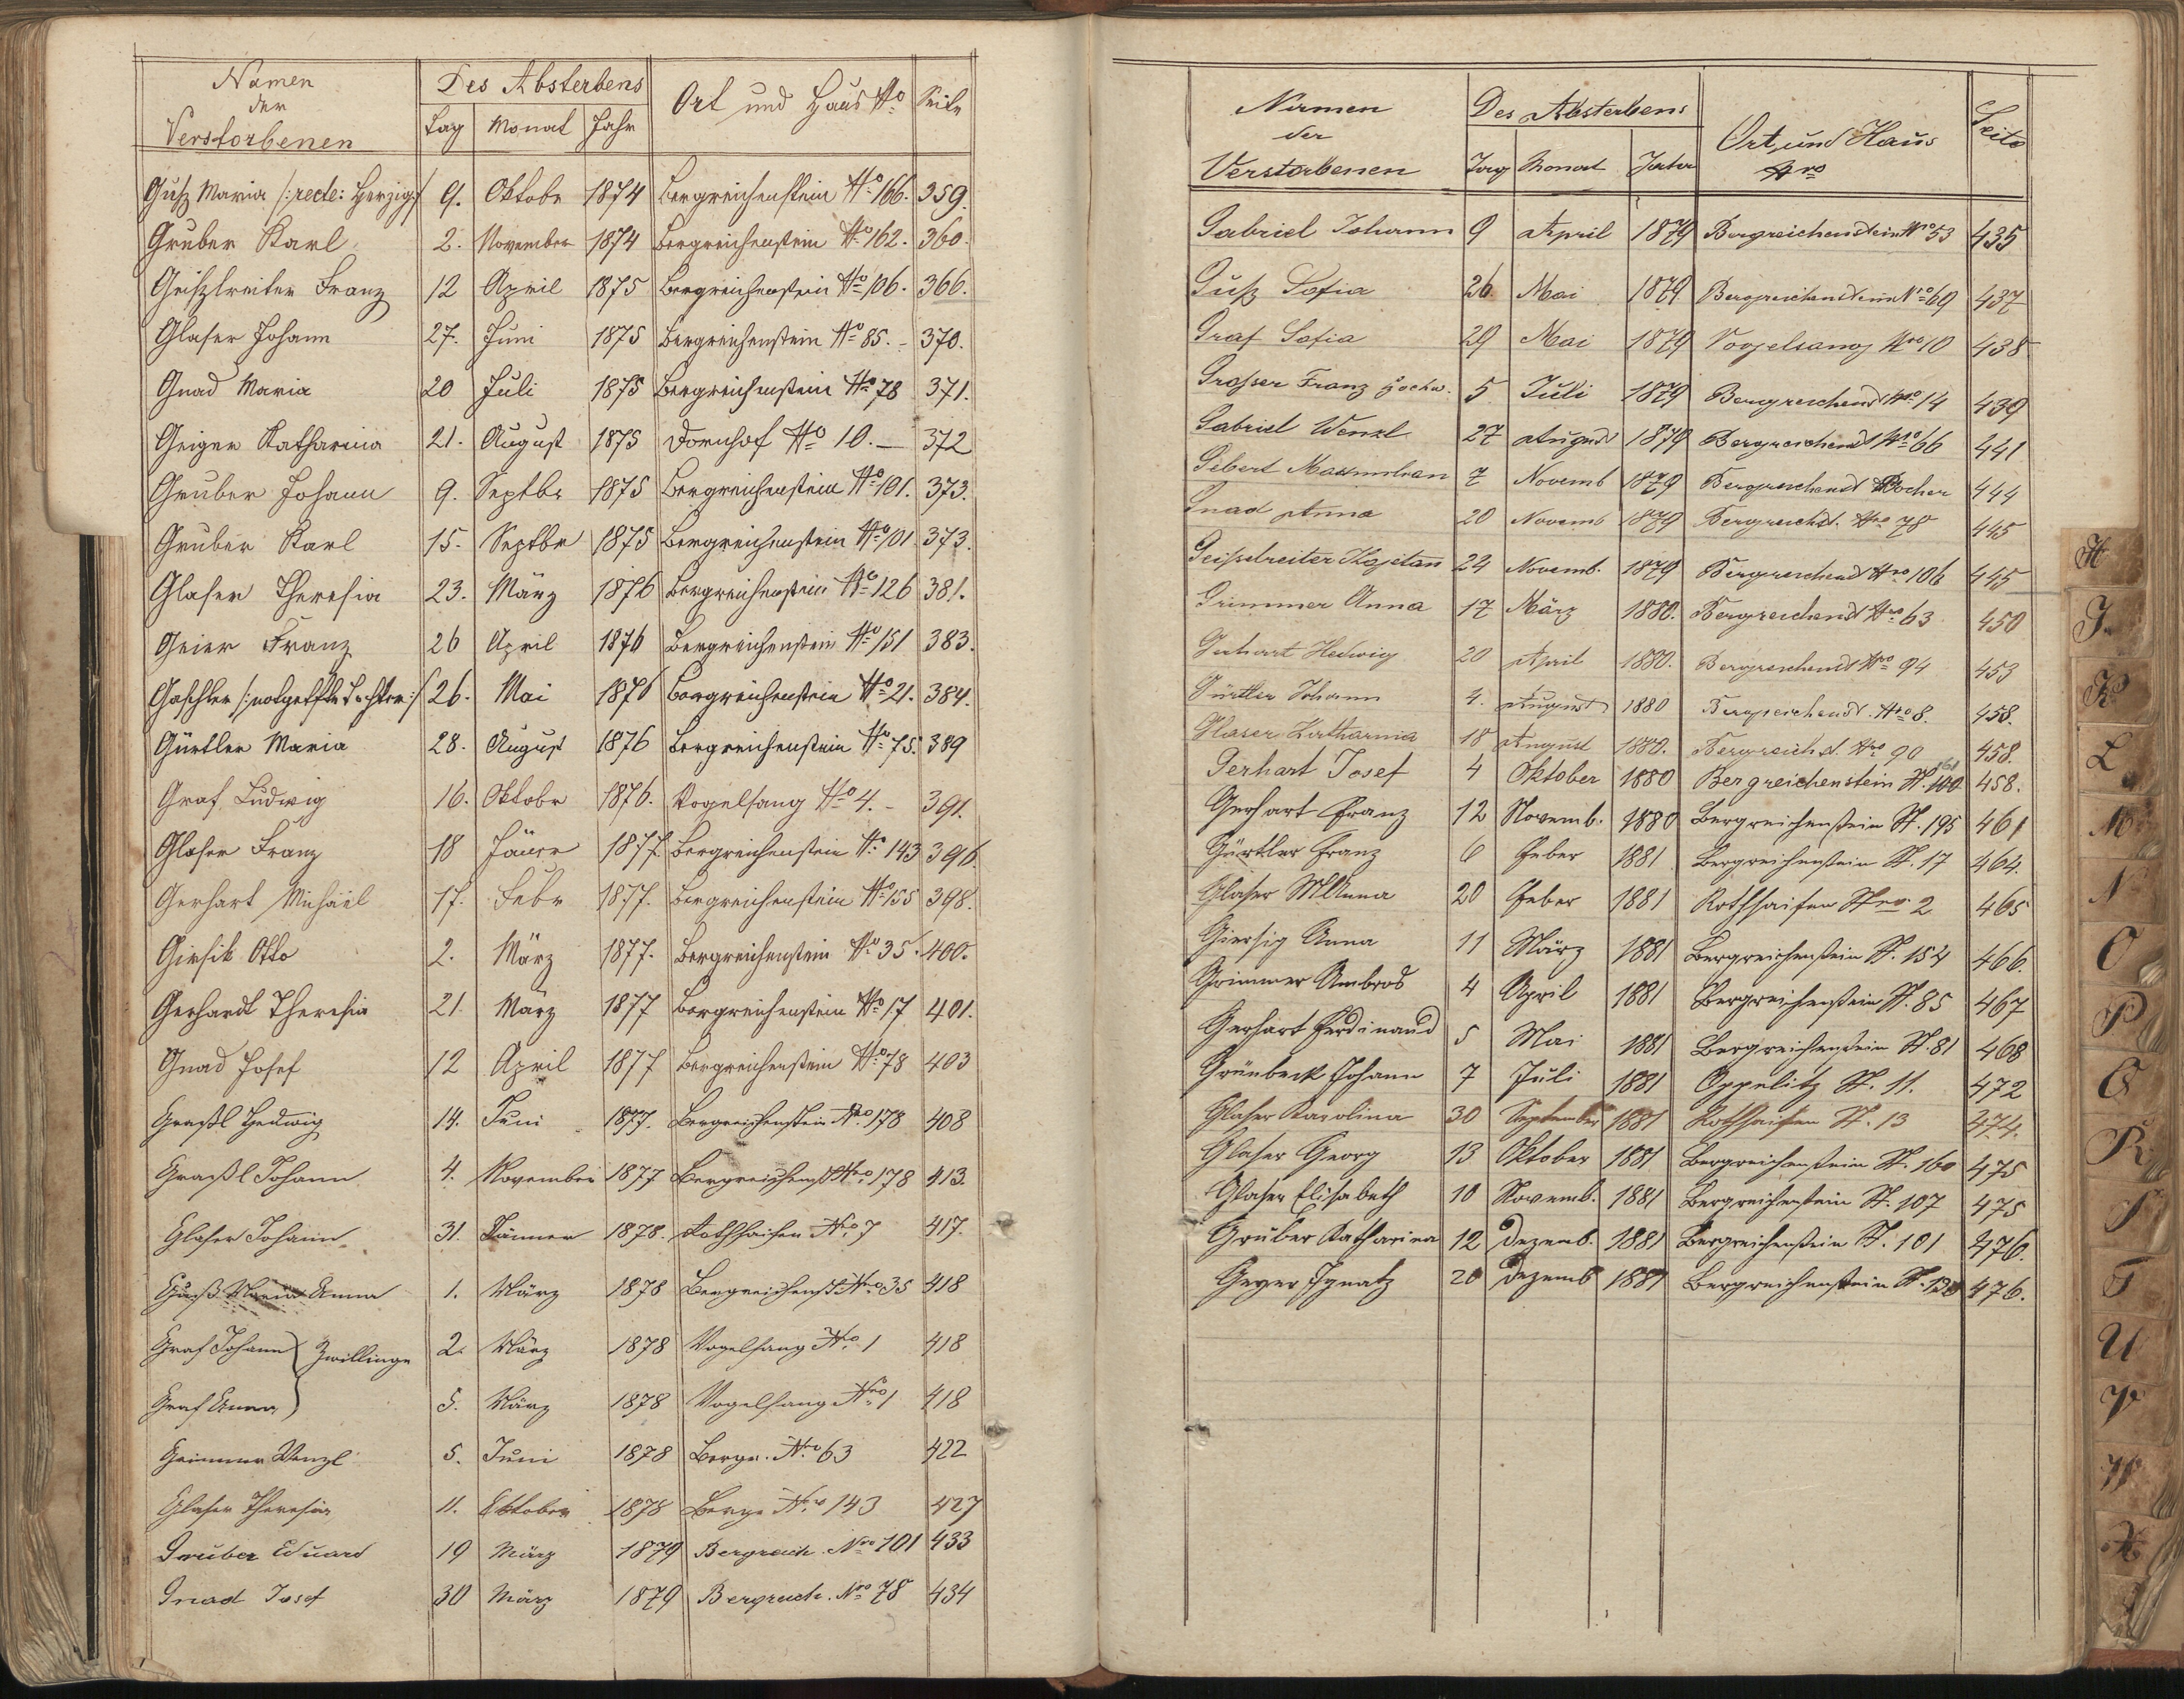 Namen
der
Verstorbenen
Des Absterbens
Tag Monat Jahr
Ort und Haus No
Seite
Guß Maria /:recte: Herzig:/ 9. Oktobr 1874 Bergreichenstein No 166. 359.
Gruber Karl 2. November 1874 Bergreichenstein No 162. 360.
Geißlreiter Franz 12 April 1875 Bergreichenstein No 106. 366.
Glaser Johann 27. Juni 1875 Bergreichenstein No 85. - 370.
Gnad Maria 20 Juli 1875 Bergreichenstein No 78 371.
Geiger Katharina 21. August 1875 Dornhof No 10. — 372
Gruber Johann 9. Septbr 1875 Bergreichenstein No 101. 373.
Gruber Karl 15. Septbr 1875 Bergreichenstein No 101 373.
Glaser Theresia 23. März 1876 Bergreichenstein No 126 381.
Geier Franz 26 April 1876 Bergreichenstein No 151 383.
Gaschler /:notgetfte Tochter:/ 26. Mai 1876 Bergreichenstein No 21. 384.
Gürtler Maria 28. August 1876 Bergreichenstein No 75. 389
Graf Ludwig 16. Oktobr 1876. Vogelsang No 4. - 391.
Glaser Franz 18 Jänner 1877. Bergreichenstein No 143 396.
Gerhart Michäel 17. Febr 1877. Bergreichenstein No 155 398.
Girsik Otto 2. März 1877. Bergreichenstein No 35. 400.
Gerhardt Theresia 21. März 1877 Bergreichenstein No 17 401.
Gnad Josef 12 April 1877 Bergreichenstein No 78 403
Graßl Hedwig 14. Juni 1877. Bergreichenstein Nro 178 408
Graßl Johann 4. November 1877 Bergreichenst Nro 178 413.
Glaser Johann 31. Jänner 1878. Rothsaifen Nro 7 417.
Guß Maria Anna 1. März 1878 Bergreichenst Nro 35 418
Graf Johann } Zwillinge 2. März 1878 Vogelsang No 1 418
Graf Anna } 5. März 1878 Vogelsang Nro 1 418
Grimmer Wenzl 5. Juni 1878 Bergr. Nro 63 422
Glaser Theresia 11. Oktober 1878 Bergr Nro 143 427
Gruber Eduard 19 März 1879 Bergreich. Nro 101 433
Gnad Josef 30 März 1879 Bergreich. Nro 78 434
Namen
der
Verstorbenen
Des Absterbens
Tag Monat Jahr
Ort und Haus
Nro
Seite
Gabriel Johann 9 April 1879 Bergreichenstein Nro 53 435
Guß Sofia 26. Mai 1879 Bergreichenstein Nro 69 437
Graf Sofia 29 Mai 1879 Vogelsang Nro 10 438
Großer Franz Hochw. 5 Juli 1879 Bergreichenst Nro 14 439
Gabriel Wenzl 27 August 1879 Bergreichenst Nro 66 441
Gebert Maxmilian 7 Novemb 1879 Bergreichenst 444
Gnad Anna 20 Novemb 1879 Bergreichst. Nro 78 445
Geißelreiter Kajetan 24 Novemb. 1879 Bergreichenst Nro 106 445
Grimmer Anna 17 März 1880. Bergreichenst Nro 63 450
Gerhart Hedwig 20 April 1880. Bergreichenst Nro 94 453
Gürtler Johann 4. August 1880 Bergreichenst. Nro 8. 458.
Glaser Katharina 18 August 1880. Bergreichst. Nro 90 458.
Gerhart Josef 4 Oktober 1880 Bergreichenstein N. 161 458.
Gerhart Franz 12 Novemb. 1880 Bergreichenstein N. 195 461
Gürtler Franz 6 Feber 1881 Bergreichenstein N. 17 464.
Glaser MAnna 20 Feber 1881 Rothsaifen Nro 2 465
Giersig Anna 11 März 1881 Bergreichenstein N. 154 466.
Grimmer Ambros 4 April 1881 Bergreichenstein N. 85 467
Gerhart Ferdinand 5 Mai 1881 Bergreichenstein N. 81 468
Grünbeck Johann 7 Juli 1881 Oppelitz N. 11. 472
Glaser Karolina 30 September 1881 Rothsaifen N. 13 474.
Glaser Georg 13 Oktober 1881 Bergreichenstein N. 160 475
Glaser Elisabeth 10 Novemb. 1881 Bergreichenstein N. 107 475
Gruber Katharina 12 Dezemb. 1881 Bergreichenstein N. 101 476.
Geyer Ignatz 20 Dezemb 1881 Bergreichenstein N. 130 476.
H
J
K
L
M
N
O
P
Q
R
S
T
U
V
W
X